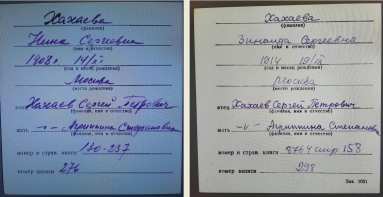 Хахаева
(фамилия)
Нина Сергеевна
(имя и отчество)
1908г. 14/
(год и месяц рождения)
Москва
(место рождения)
отец Хахаев Сергей Петрович
(фамилия, имя и отчество)
мать —"— Агриппина Степановна
(фамилия, имя и отчество)
номер и страниц. книги 130-237
номер записи 276
Хахаева
(фамилия)
Зинаида Сергеевна
(имя и отчество)
1914 19/
(год и месяц рождения)
Москва
(место рождения)
отец Хахаев Сергей Петрович
(фамилия, имя и отчество)
мать —"— Агриппина Степановна
(фамилия, имя и отчество)
номер и страниц. книги 8764 стр 158
номер записи 298
Зак. 1051